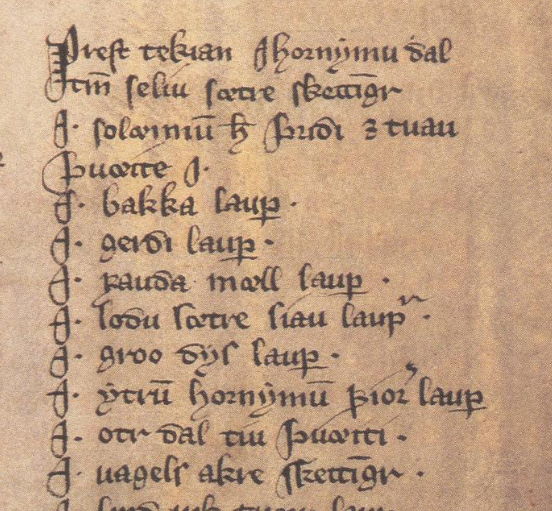 Prest tekian J hornymu dal
Jtm̄ seliu sætre skettīgr
J· solæimū h̄ þridi ꝫ tuau
þuæite J·
J· bakka laup̲ ·
J· gerdi laup̲ ·
J· rauda mæll laup̲ ·
J· lodu sætre siau laupʳ ·
J· groo dys laup̲ ·
J· ytrū hornymū fior laup̲
J· otr dal tiu þuætti ·
J· uagels akre skettīgr ·